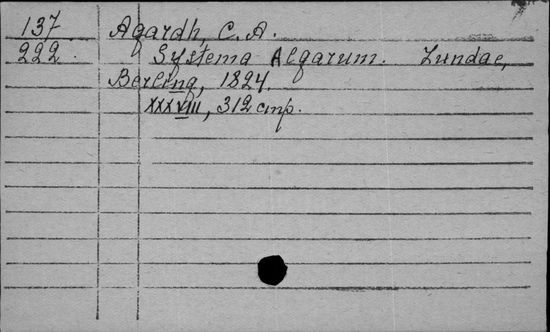 137 Agardh, C. A.
222. Systema Algarum. Lundae,
Berling, 1824.
XXXVIII, 312 стр.